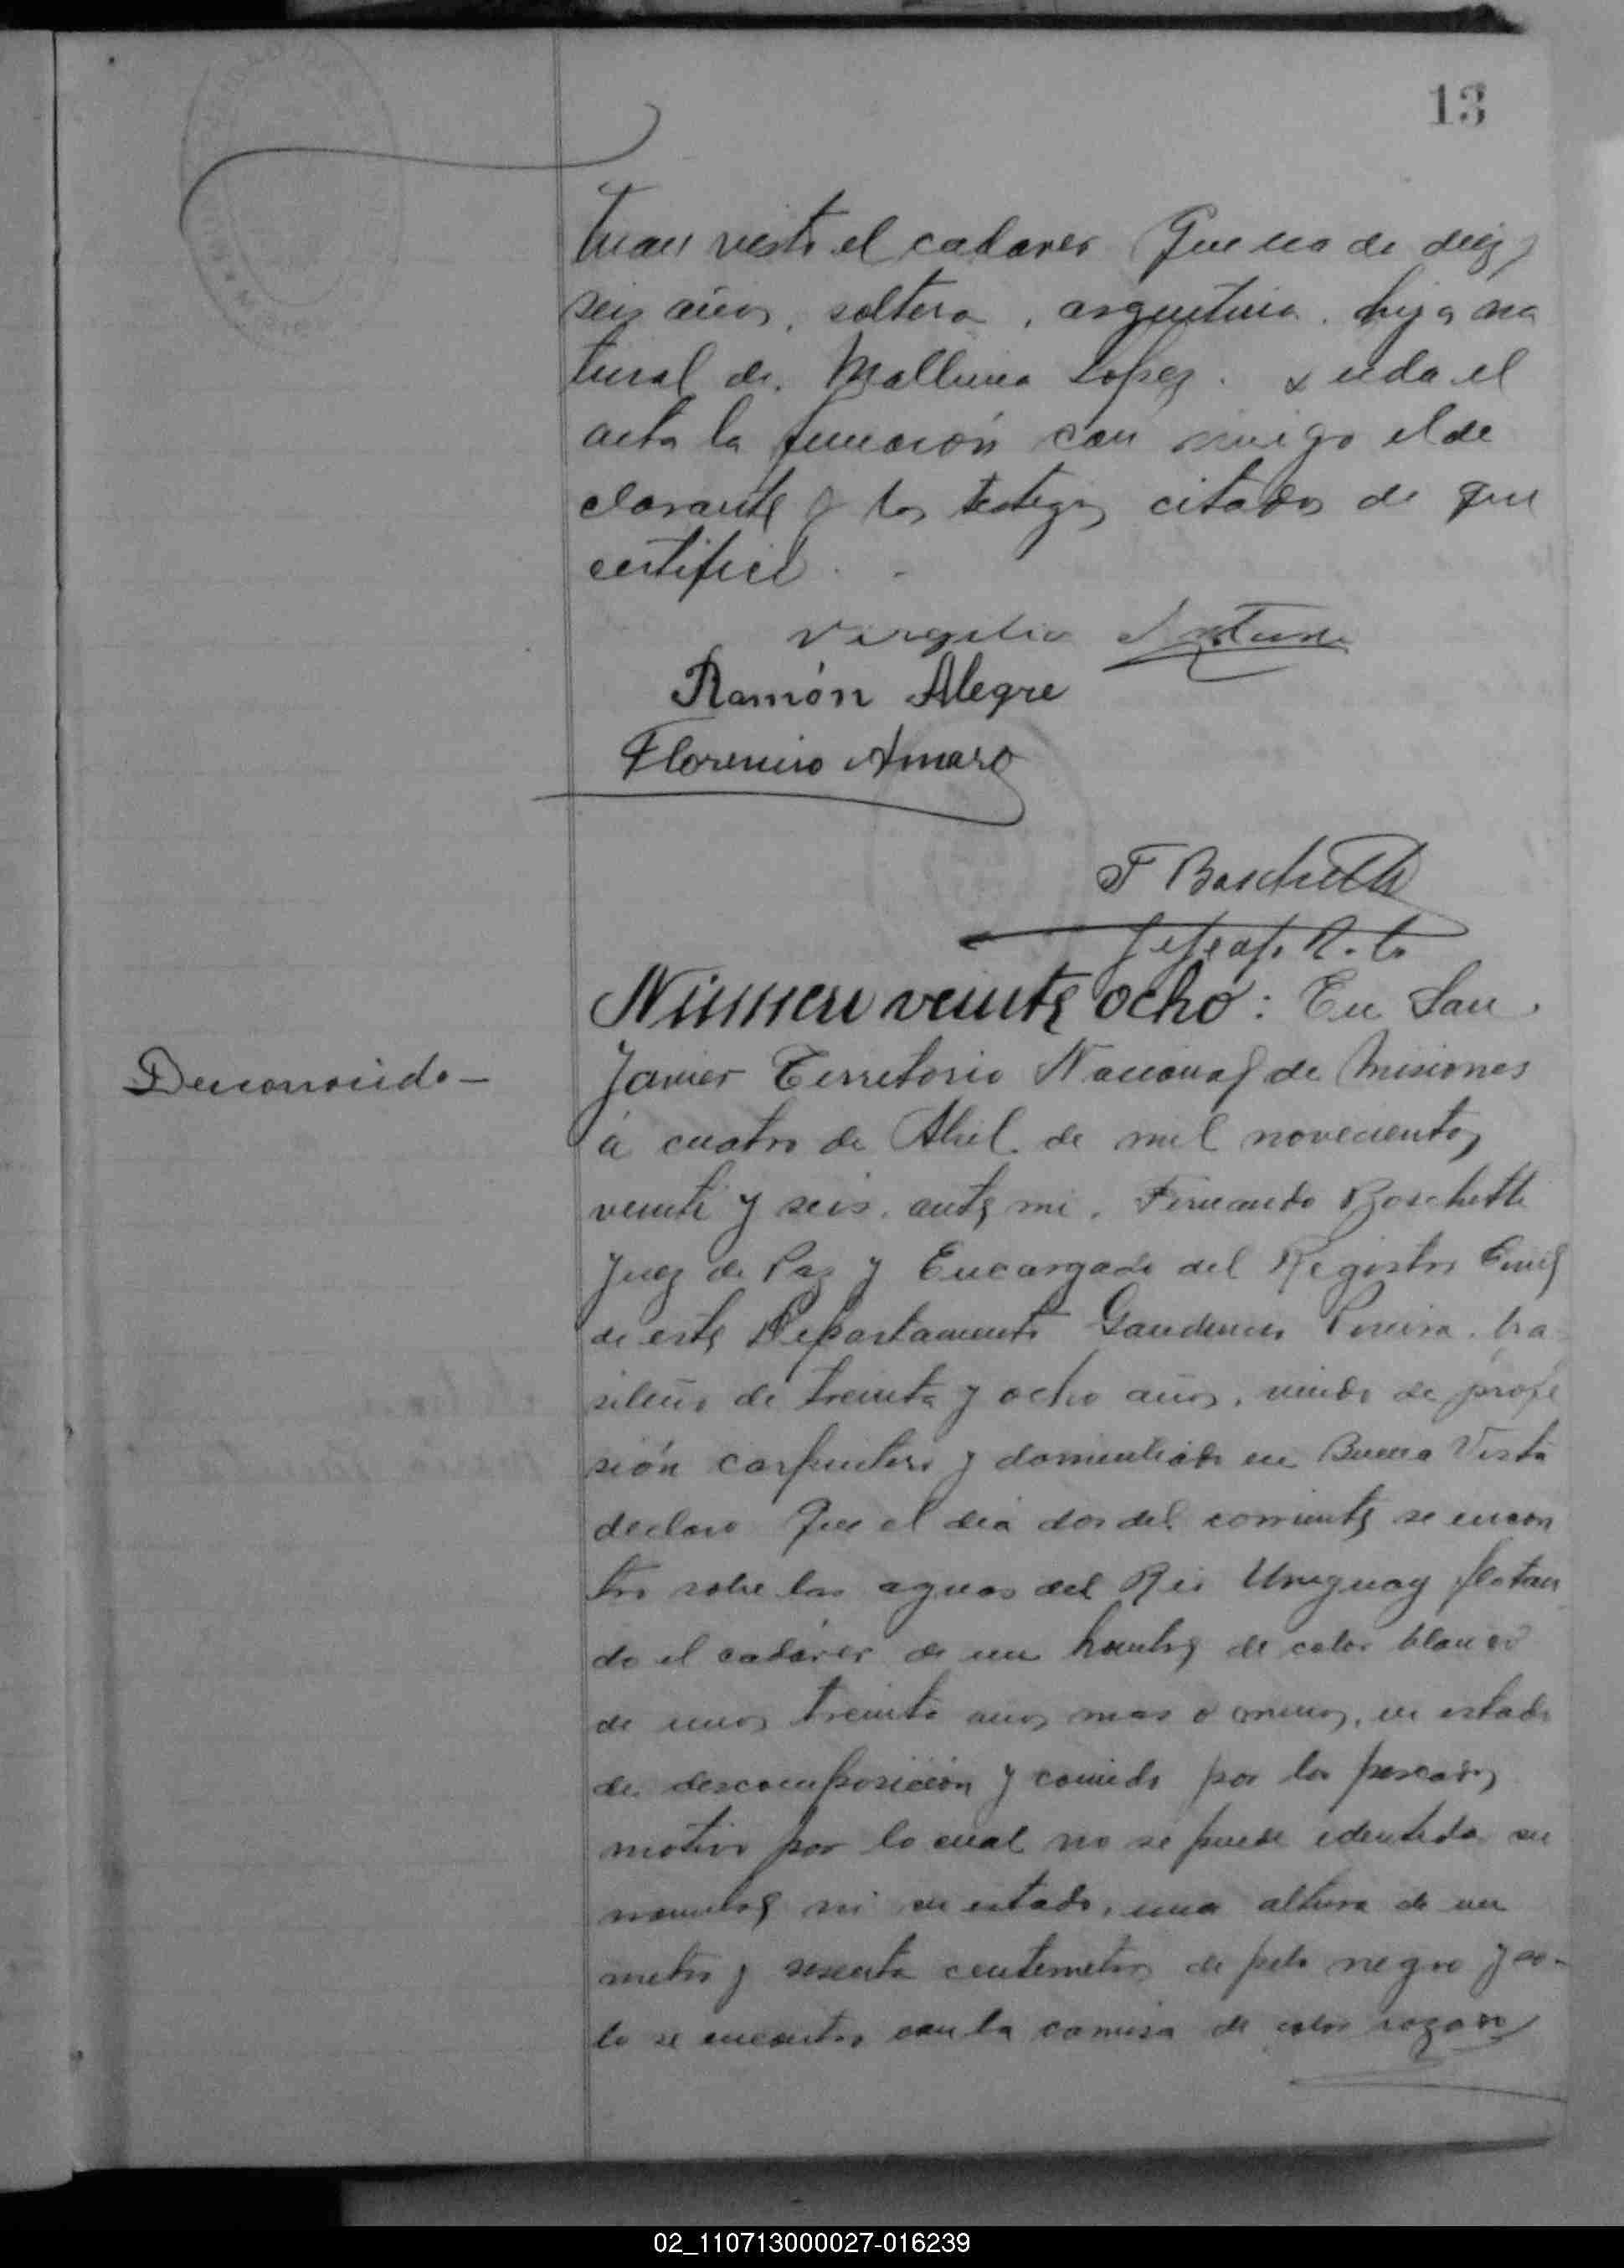 13
han visto el cadaver Que era de diez y
seis años, soltera, argentina, hija na
tural de. Lopez. Leida el
acta la firmaron con migo el de
clarante y los testigos citados de que
certifico.
Virgilio
Ramón Alegre
Florencio Amaro
F Boschetti
Número veinte ocho: En San
Desconocido —
Javier Territorio Nacional de Misiones
á cuatro de Abril de mil novecientos
veinti y seis, ante mi, Fernando Boschetti
Juez de Paz y Encargado del Registro Civil
de este Departamento Gaudencio Pereira, bra
sileño de treinta y ocho años, viudo de profe
sión carpintero y domiciliado en Buena Vista
declaro Que el día dos del corriente se encon
tro sobre las aguas del Rio Uruguay flotan
do el cadáver de un hombre de color blanco
de unos treinta años mas o menos, en estado
de descomposición y comido por los pescados
motivo por lo cual no se puede su
nombre ni su estado, una altura de un
metro y sesenta centimetros de pelo negro y so-
lo se encontro con la camisa de color rozado
02_110713000027-016239